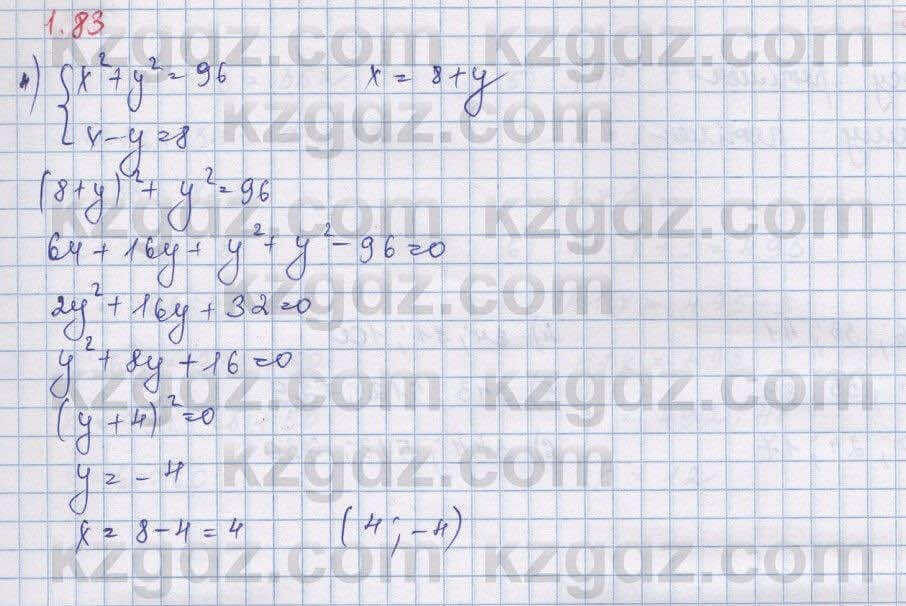 1.83
4) { x² + y² = 96        x = 8 + y
x - y = 8
(8 + y)² + y² = 96
64 + 16y + y² + y² - 96 = 0
2y² + 16y + 32 = 0
y² + 8y + 16 = 0
(y + 4)² = 0
y = - 4
x = 8 - 4 = 4        (4; -4)
kzgdz.com
kzgdz.com
kzgdz.com
kzgdz.com
kzgdz.com
kzgdz.com
kzgdz.com
kzgdz.com
kzgdz.com
kzgdz.com